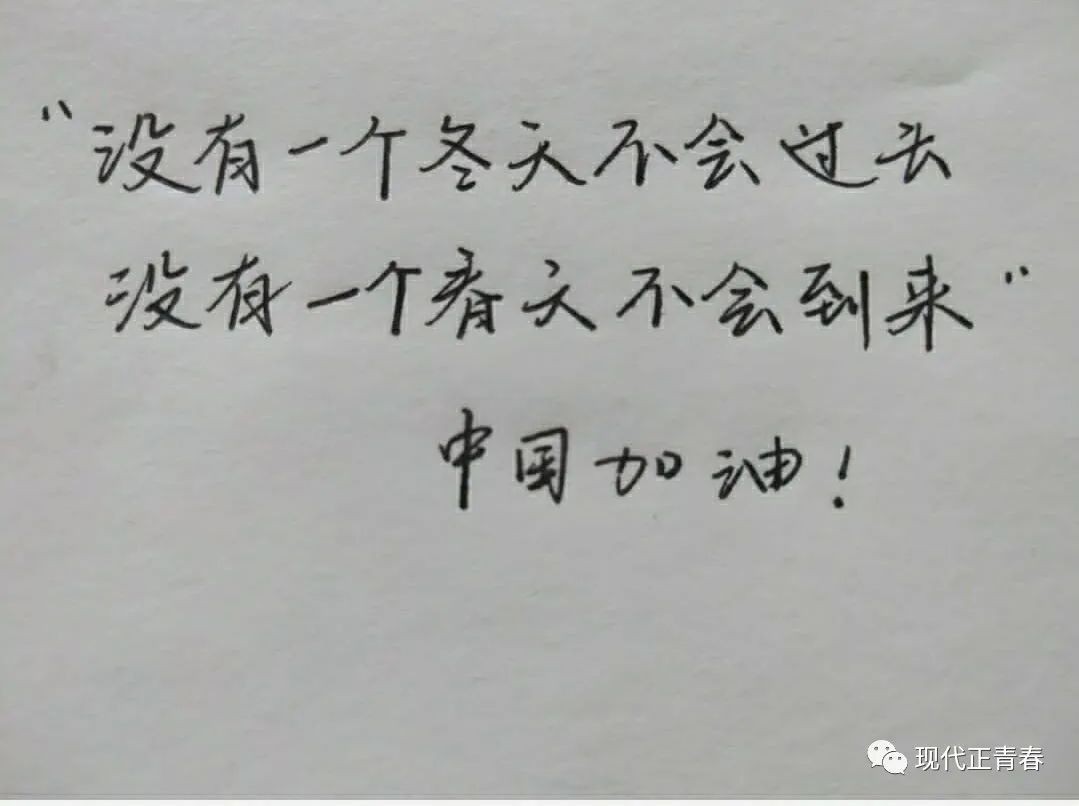 “没有一个冬天不会过去
没有一个春天不会到来”
中国加油！
现代正青春